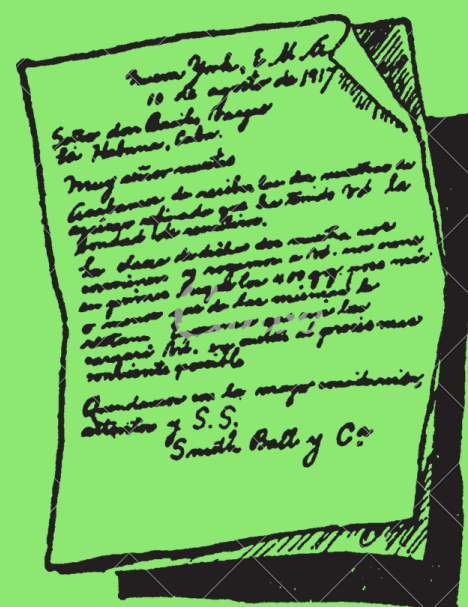 Nueva York, E. U. A.
10 de agosto de 1917
Señor don Basilio Vargas
La Habana, Cuba.
Muy señor nuestro
Acabamos de recibir las dos muestras de
azúcar refinado que ha tenido Vd la
bondad de remitirnos.
La clase de dichas dos nos
convienen y rogamos a Vd. nos
en primer lugar los 400 q/q poco más
o menos que de las mismas le
restan
cargará Vd. precio mas
conveniente posible
Quedamos con la mayor consideración,
atentos y S. S.
Smith Ball y Cª